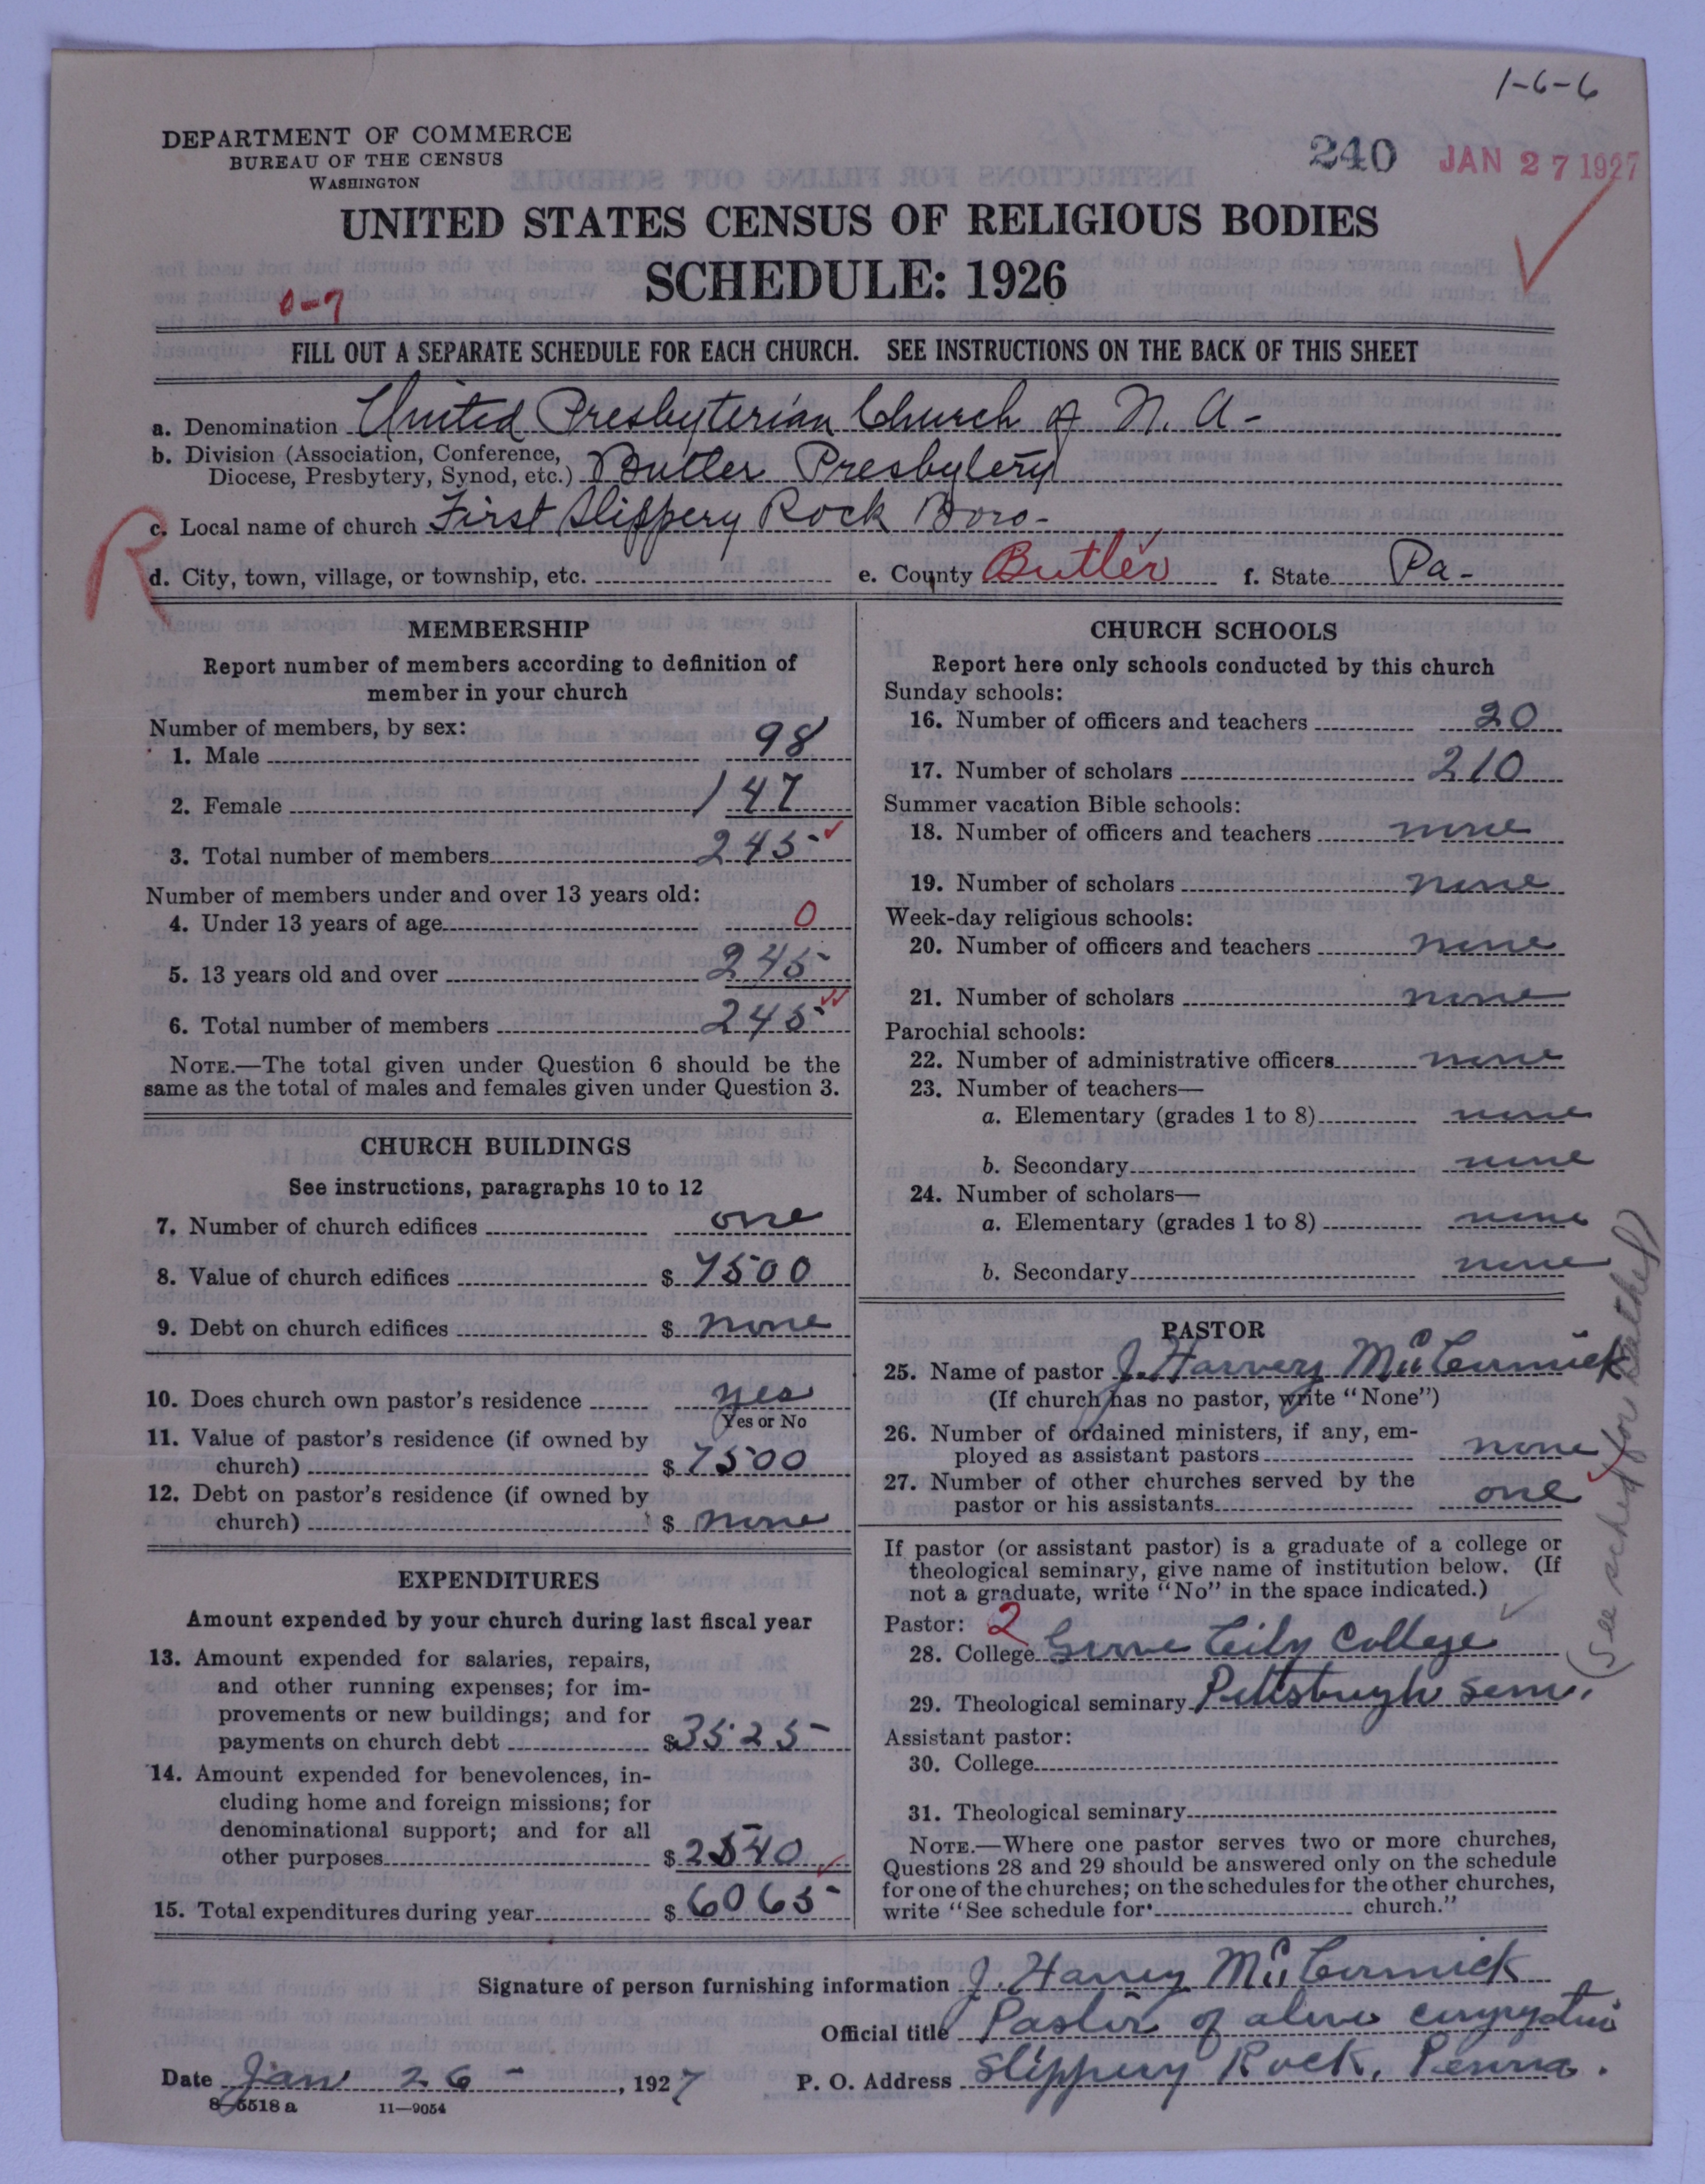 1-6-6
DEPARTMENT OF COMMERCE
BUREAU OF THE CENSUS
WASHINGTON
240 JAN 27 1927
UNITED STATES CENSUS OF RELIGIOUS BODIES
SCHEDULE: 1926
0-7
FILL OUT A SEPARATE SCHEDULE FOR EACH CHURCH. SEE INSTRUCTIONS ON THE BACK OF THIS SHEET
a. Denomination United Presbyterian Church of N. A-
b. Division (Association, Conference,
Diocese, Presbytery, Synod, etc.) Butler Presbytery
c. Local name of church First Slippery Rock Boro-
R
d. City, town, village, or township, etc. e. County Butler f. State Pa-
MEMBERSHIP
Report number of members according to definition of
member in your church
Number of members, by sex:
1. Male 98
2. Female 147
3. Total number of members 245
Number of members under and over 13 years old:
4. Under 13 years of age 0
5. 13 years old and over 245
6. Total number of members 245
NOTE.—The total given under Question 6 should be the
same as the total of males and females given under Question 3.
CHURCH BUILDINGS
See instructions, paragraphs 10 to 12
7. Number of church edifices one
8. Value of church edifices $ 7500
9. Debt on church edifices $ none
10. Does church own pastor's residence yes
Yes or No
11. Value of pastor's residence (if owned by
church) $ 7500
12. Debt on pastor's residence (if owned by
church) $ none
EXPENDITURES
Amount expended by your church during last fiscal year
13. Amount expended for salaries, repairs,
and other running expenses; for im-
provements or new buildings; and for
payments on church debt $ 3525
14. Amount expended for benevolences, in-
cluding home and foreign missions; for
denominational support; and for all
other purposes $ 2540
15. Total expenditures during year $ 6065
CHURCH SCHOOLS
Report here only schools conducted by this church
Sunday schools:
16. Number of officers and teachers 20
17. Number of scholars 210
Summer vacation Bible schools:
18. Number of officers and teachers none
19. Number of scholars none
Week-day religious schools:
20. Number of officers and teachers none
21. Number of scholars none
Parochial schools:
22. Number of administrative officers none
23. Number of teachers—
a. Elementary (grades 1 to 8) none
b. Secondary none
24. Number of scholars—
a. Elementary (grades 1 to 8) none
b. Secondary none
PASTOR
25. Name of pastor J. Harvey McCormick
(If church has no pastor, write "None")
26. Number of ordained ministers, if any, em-
ployed as assistant pastors none
27. Number of other churches served by the
pastor or his assistants one
If pastor (or assistant pastor) is a graduate of a college or
theological seminary, give name of institution below. (If
not a graduate, write "No" in the space indicated.)
Pastor: 2
28. College Grove City College
29. Theological seminary Pittsburgh Sem.
Assistant pastor:
30. College
31. Theological seminary
NOTE.—Where one pastor serves two or more churches,
Questions 28 and 29 should be answered only on the schedule
for one of the churches; on the schedules for the other churches,
write "See schedule for church."
(See sched for
Signature of person furnishing information J. Harvey McCormick
Official title Pastor of above congregation
Date Jan 26 - , 1927 P. O. Address Slippery Rock, Penna.
8-5518 a 11—9054